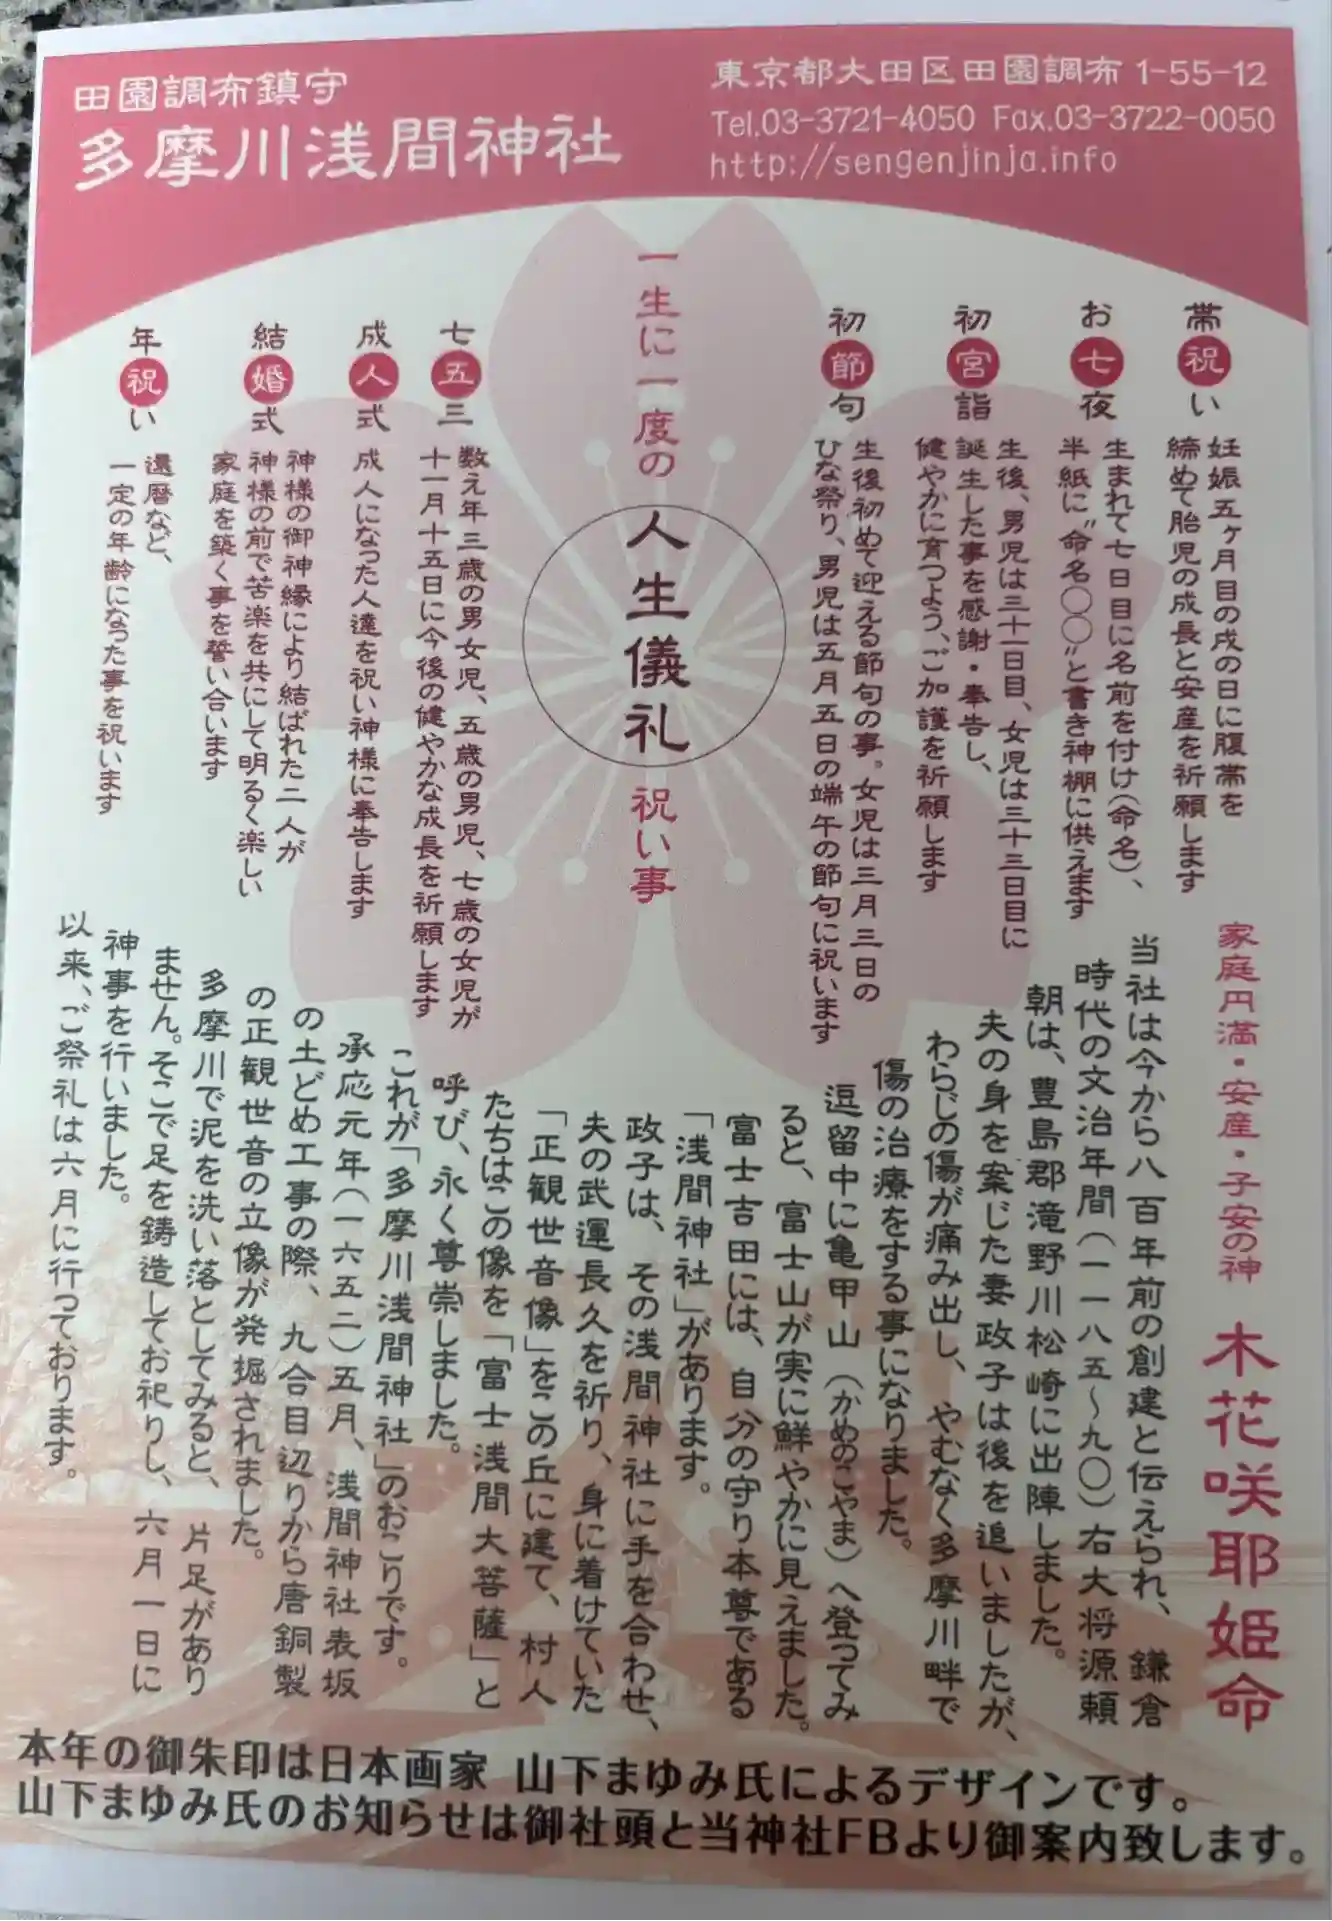 田園調布鎮守
多摩川浅間神社
東京都大田区田園調布 1-55-12
Tel.03-3721-4050 Fax.03-3722-0050
http://sengenjinja.info
一生に一度の人生儀礼祝い事
帯祝い
妊娠五ヶ月目の戌の日に腹帯を
締めて胎児の成長と安産を祈願します
お七夜
生まれて七日目に名前を付け(命名)、
半紙に"命名〇〇"と書き神棚に供えます
初宮詣
生後、男児は三十一日目、女児は三十三日目に
誕生した事を感謝・奉告し、
健やかに育つよう、ご加護を祈願します
初節句
生後初めて迎える節句の事。女児は三月三日の
ひな祭り、男児は五月五日の端午の節句に祝います
七五三
数え年三歳の男女児、五歳の男児、七歳の女児が
十一月十五日に今後の健やかな成長を祈願します
成人式
成人になった人達を祝い神様に奉告します
結婚式
神様の御神縁により結ばれた二人が
神様の前で苦楽を共にして明るく楽しい
家庭を築く事を誓い合います
年祝い
還暦など、
一定の年齢になった事を祝います
家庭円満・安産・子安の神 木花咲耶姫命
当社は今から八百年前の創建と伝えられ、鎌倉
時代の文治年間(一一八五~九〇)右大将源頼
朝は、豊島郡滝野川松崎に出陣しました。
夫の身を案じた妻政子は後を追いましたが、
わらじの傷が痛み出し、やむなく多摩川畔で
傷の治療をする事になりました。
逗留中に亀甲山(かめのこやま)へ登ってみ
ると、富士山が実に鮮やかに見えました。
富士吉田には、自分の守り本尊である
「浅間神社」があります。
政子は、その浅間神社に手を合わせ、
夫の武運長久を祈り、身に着けていた
「正観世音像」をこの丘に建て、村人
たちはこの像を「富士浅間大菩薩」と
呼び、永く尊崇しました。
これが「多摩川浅間神社」のおこりです。
承応元年(一六五二)五月、浅間神社表坂
の土どめ工事の際、九合目辺りから唐銅製
の正観世音の立像が発掘されました。
多摩川で泥を洗い落としてみると、片足があり
ません。そこで足を鋳造してお祀りし、六月一日に
神事を行いました。
以来、ご祭礼は六月に行っております。
本年の御朱印は日本画家 山下まゆみ氏によるデザインです。
山下まゆみ氏のお知らせは御社頭と当神社FBより御案内致します。